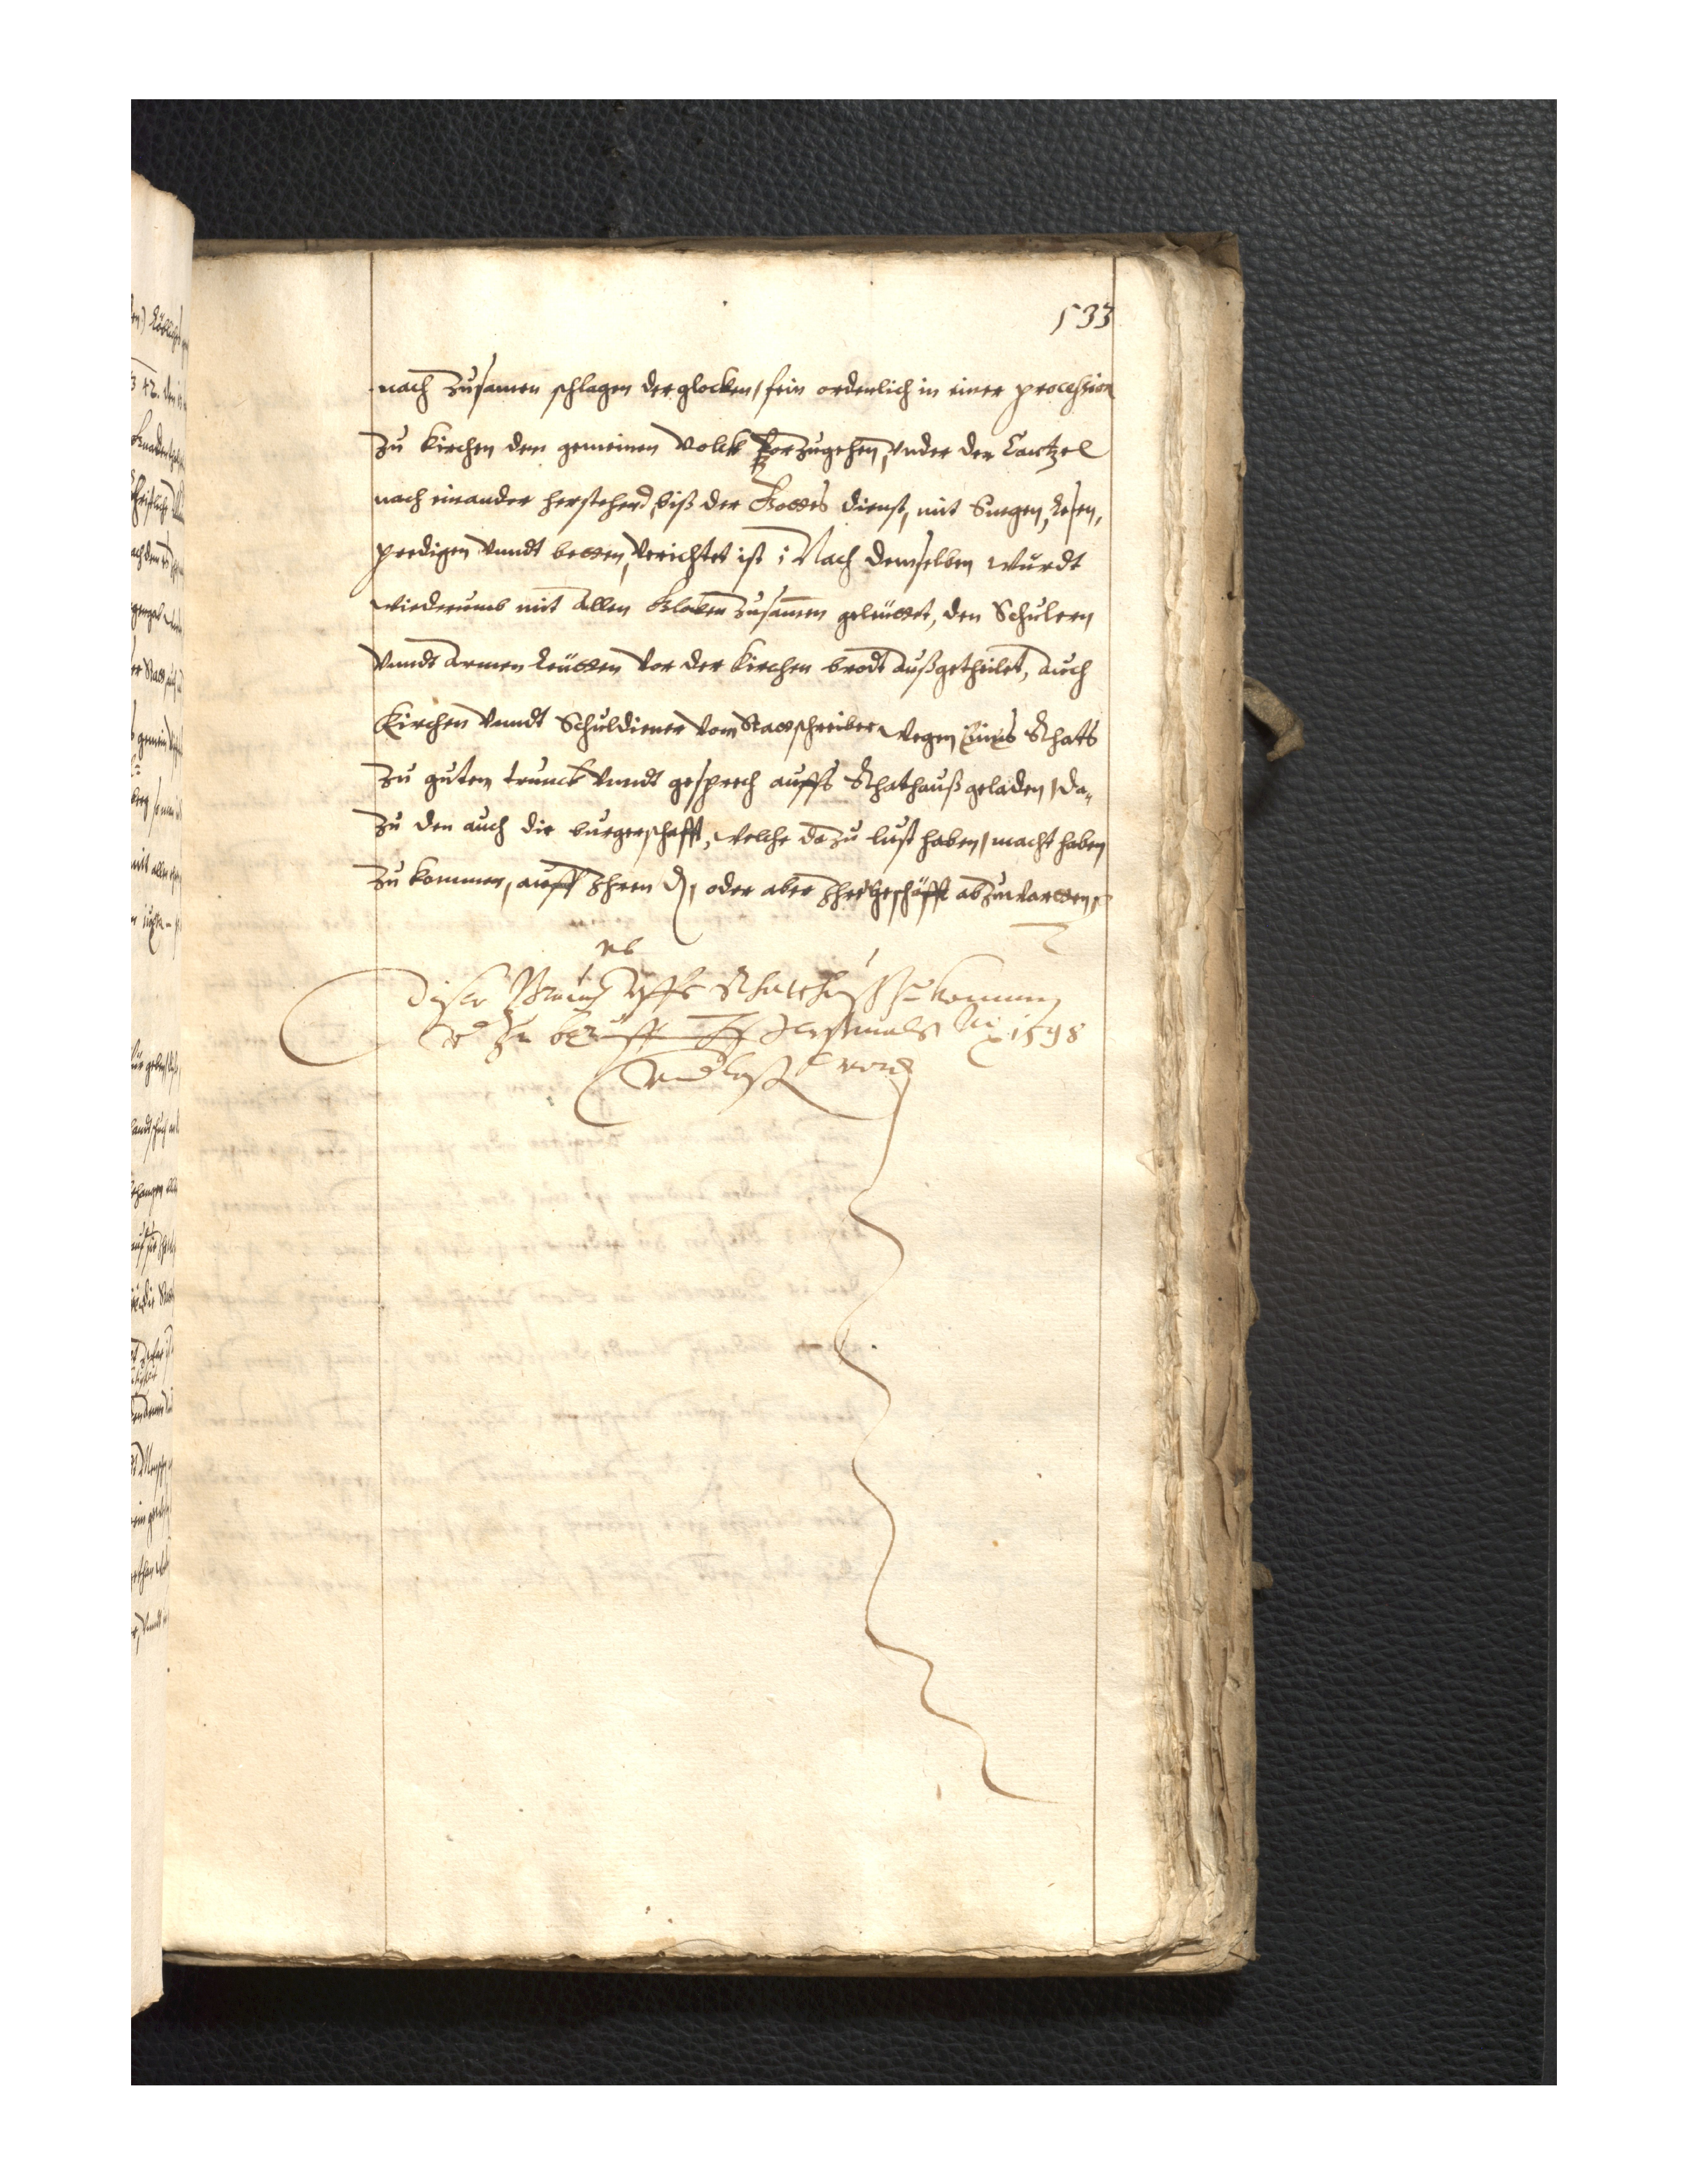 133
nach zusamen schlagen der glocken, fein ordenlich in einer procession
zu kirchen dem gemeinen volck vorzugehen, vnder der Cantzel
nach einander herstehend, biß der Gottes dienst, mit Singen, lesen,
predigen vnndt betten, verrichtet ist: Nach demselben wurdt
wiederumb mit allen Glocken zusamen geleüttet, den Schulern
vnndt armen leütten vor der kirchen brodt außgetheilet, auch
Kirchen vnndt Schuldiener vom Stattschreiber wegen Eines Rhats
zu gutem trunck vnndt gesprech auffs Rhathauß geladen, da„
zu den auch die burgerschafft, welche dazu lust haben, macht haben
zu kommen, auff Ihren d, oder aber Ihre geschäfft abzuwartten,
Diser Brauch vffs Rhatthuß zu kommen
zu 1598